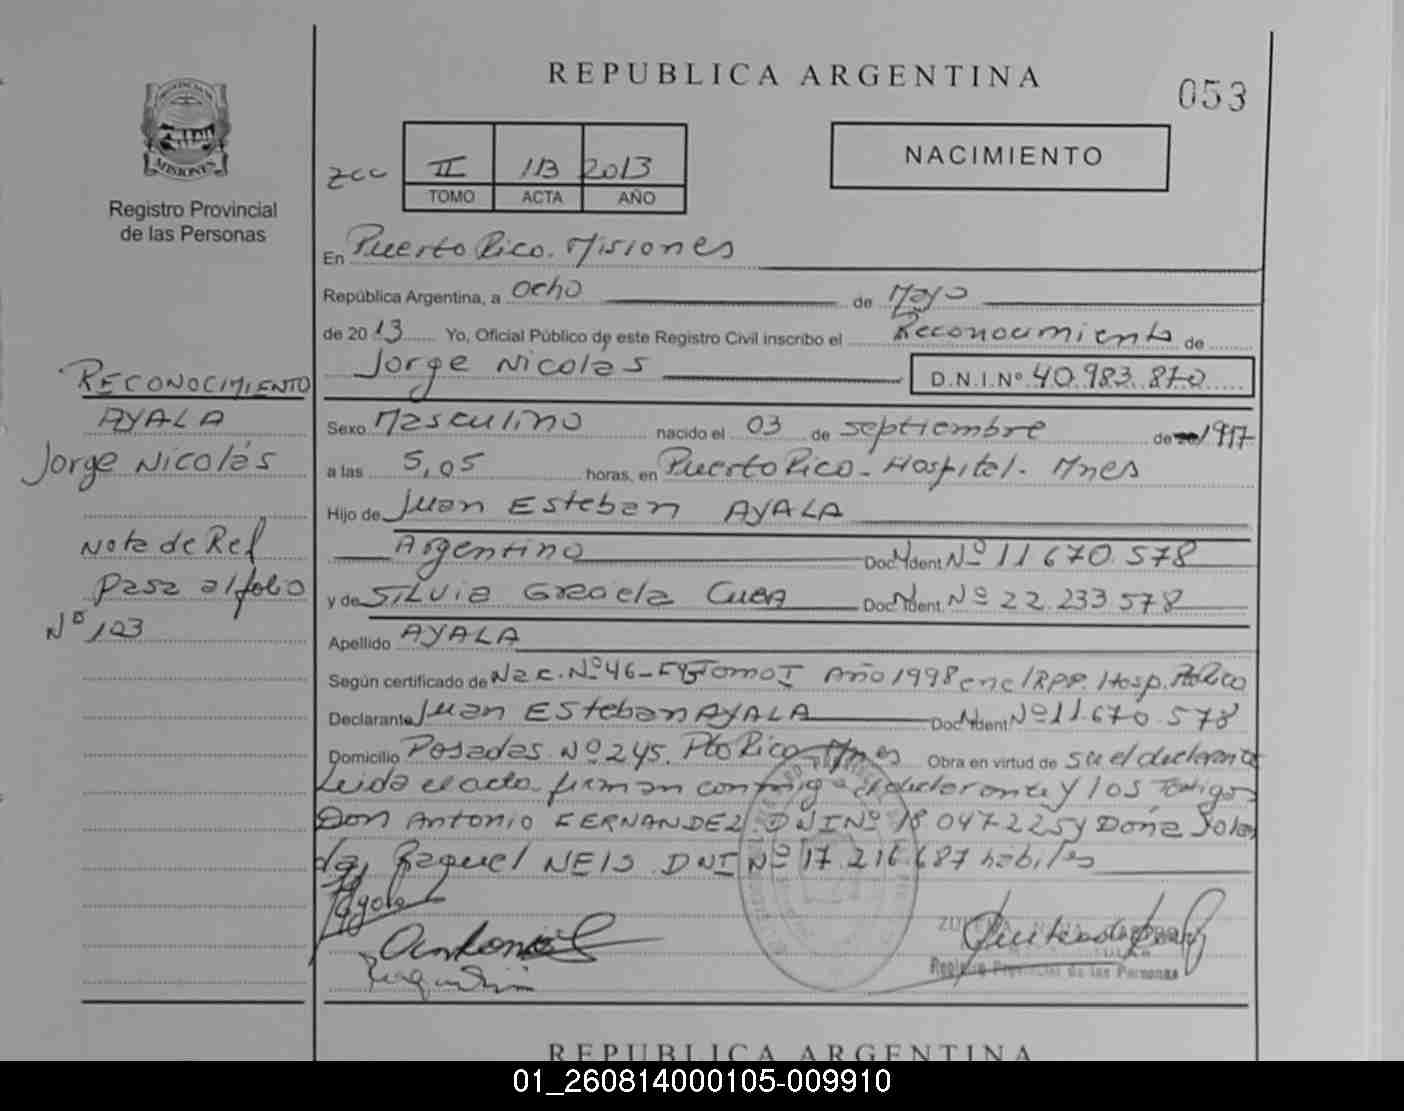 REPUBLICA ARGENTINA
053
PROVINCIA DE
MISIONES
Registro Provincial
de las Personas
zcc II 113 2013
TOMO ACTA AÑO
NACIMIENTO
En Puerto Rico. Misiones
República Argentina, a ocho de Mayo
de 2013 Yo, Oficial Público de este Registro Civil inscribo el Reconocimiento de
Jorge Nicolás D.N.I.Nº 40.983.870
RECONOCIMIENTO
AYALA
Jorge Nicolás
Nota de Ref
pasa al folio
Nº 123
Sexo Masculino nacido el 03 de septiembre de 1997
a las 5,05 horas, en Puerto Rico - Hospital - Mnes
Hijo de Juan Esteban AYALA
Argentino Doc. Ident. Nº 11 670.578
y de SILVIA Graciela Doc. Ident. Nº 22.233.578
Apellido AYALA
Según certificado de Nac. Nº 46 - Tomo I Año 1998 Hosp. P.Rico
Declarante Juan Esteban AYALA Doc. Ident. Nº 11.670.578
Domicilio Posadas Nº 245. Pto Rico Mnes Obra en virtud de su el declarante
Leida el acta firman conmigo el declarante y los Testigos
Don Antonio FERNANDEZ DNI Nº 18.047225 y Doña Yolan
da Raquel NEIS DNI Nº 17.216.687 habiles
Ayala
Antonio
Registro Provincial de las Personas
REPUBLICA ARGENTINA
01_260814000105-009910